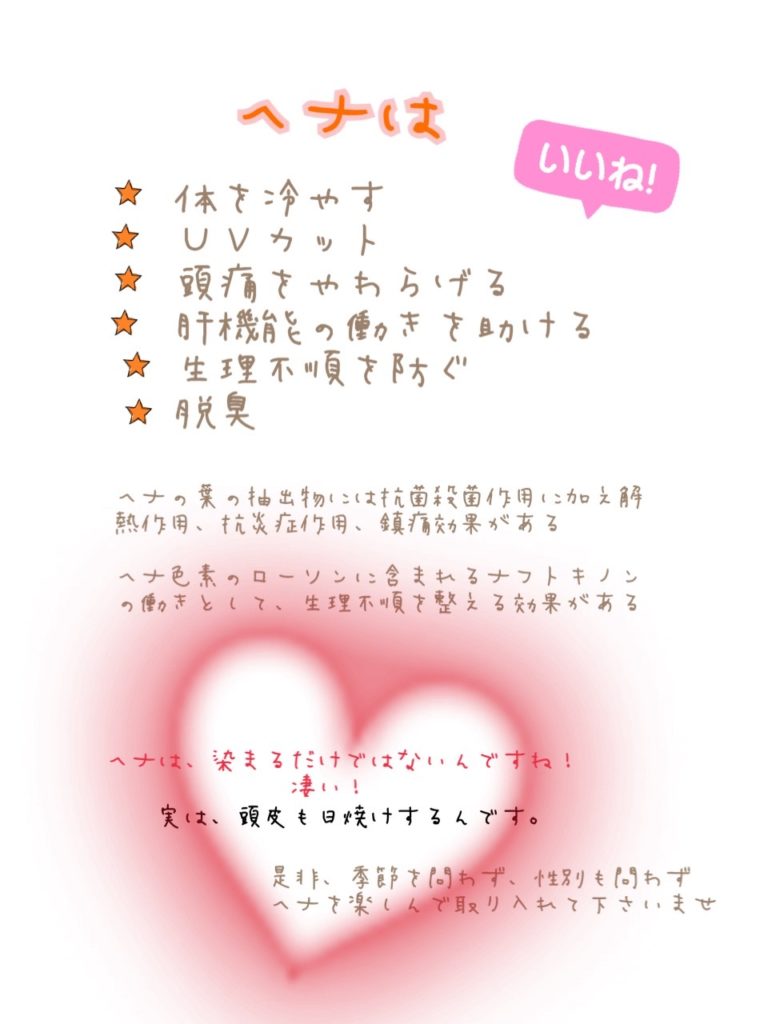 ヘナは
いいね!
体を冷やす
UVカット
頭痛をやわらげる
肝機能の働きを助ける
生理不順を防ぐ
脱臭
ヘナの葉の抽出物には抗菌殺菌作用に加え解
熱作用、抗炎症作用、鎮痛効果がある
ヘナ色素のローソンに含まれるナフトキノン
の働きとして、生理不順を整える効果がある
ヘナは、染まるだけではないんですね!
凄い!
実は、頭皮も日焼けするんです。
是非、季節を問わず、性別も問わず
ヘナを楽しんで取り入れて下さいませ